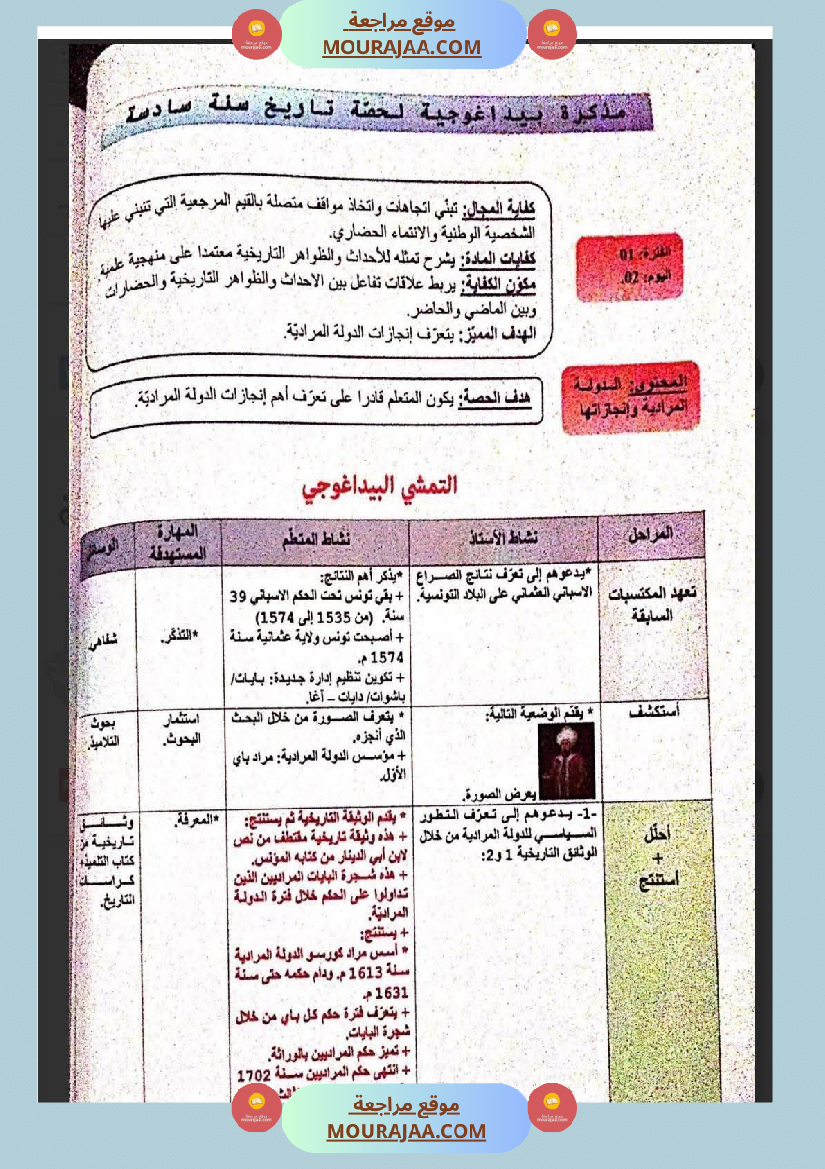 موقع مراجعة
MOURAJAA.COM
مذكرة بيداغوجية لحصّة تاريخ سنة سادسة
كفاية المجال: تبنّي اتجاهات واتخاذ مواقف متصلة بالقيم المرجعية التي تنبني عليها
الشخصية الوطنية والانتماء الحضاري.
كفايات المادة: يشرح تمثله للأحداث والظواهر التاريخية معتمدا على منهجية علمية.
مكوّن الكفاية: يربط علاقات تفاعل بين الاحداث والظواهر التاريخية والحضارات
وبين الماضي والحاضر.
الهدف المميّز: يتعرّف إنجازات الدولة المراديّة.
الفترة: 01
اليوم: 02.
المحتوى: الدولة
المرادية وإنجازاتها
هدف الحصة: يكون المتعلم قادرا على تعرّف أهم إنجازات الدولة المراديّة.
التمشي البيداغوجي
المراحل
نشاط الأستاذ
نشاط المتعلّم
المهارة
المستهدفة
تعهد المكتسبات
السابقة
*يدعوهم إلى تعرّف نتائج الصراع
الاسباني العثماني على البلاد التونسية.
*يذكر أهم النتائج:
+ بقي تونس تحت الحكم الاسباني 39
سنة. (من 1535 إلى 1574)
+ أصبحت تونس ولاية عثمانية سنة
1574 م.
+ تكوين تنظيم إدارة جديدة: بايات/
باشوات/ دايات – آغا.
*التذكّر.
شفاهي.
أستكشف
* يقدّم الوضعية التالية:
يعرض الصورة.
* يتعرف الصورة من خلال البحث
الذي أنجزه.
+ مؤسس الدولة المرادية: مراد باي
الأوّل.
استثمار
البحوث.
بحوث
التلاميذ.
أحلّل
+
أستنتج
-1- يدعوهم إلى تعرّف التطور
السياسي للدولة المرادية من خلال
الوثائق التاريخية 1 و2:
* يقدم الوثيقة التاريخية ثم يستنتج:
+ هذه وثيقة تاريخية مقتطف من نص
لابن أبي الدينار من كتابه المؤنس.
+ هذه شجرة البايات المراديين الذين
تداولوا على الحكم خلال فترة الدولة
المراديّة.
+ يستنتج:
* أسس مراد كورسو الدولة المرادية
سنة 1613 م. ودام حكمه حتى سنة
1631 م.
+ يتعرّف فترة حكم كل باي من خلال
شجرة البايات.
+ تميز حكم المراديين بالوراثة.
+ انتهى حكم المراديين سنة 1702
*المعرفة.
وثائق
تاريخية من
كتاب التلميذ
كراسات
التاريخ.
موقع مراجعة
MOURAJAA.COM